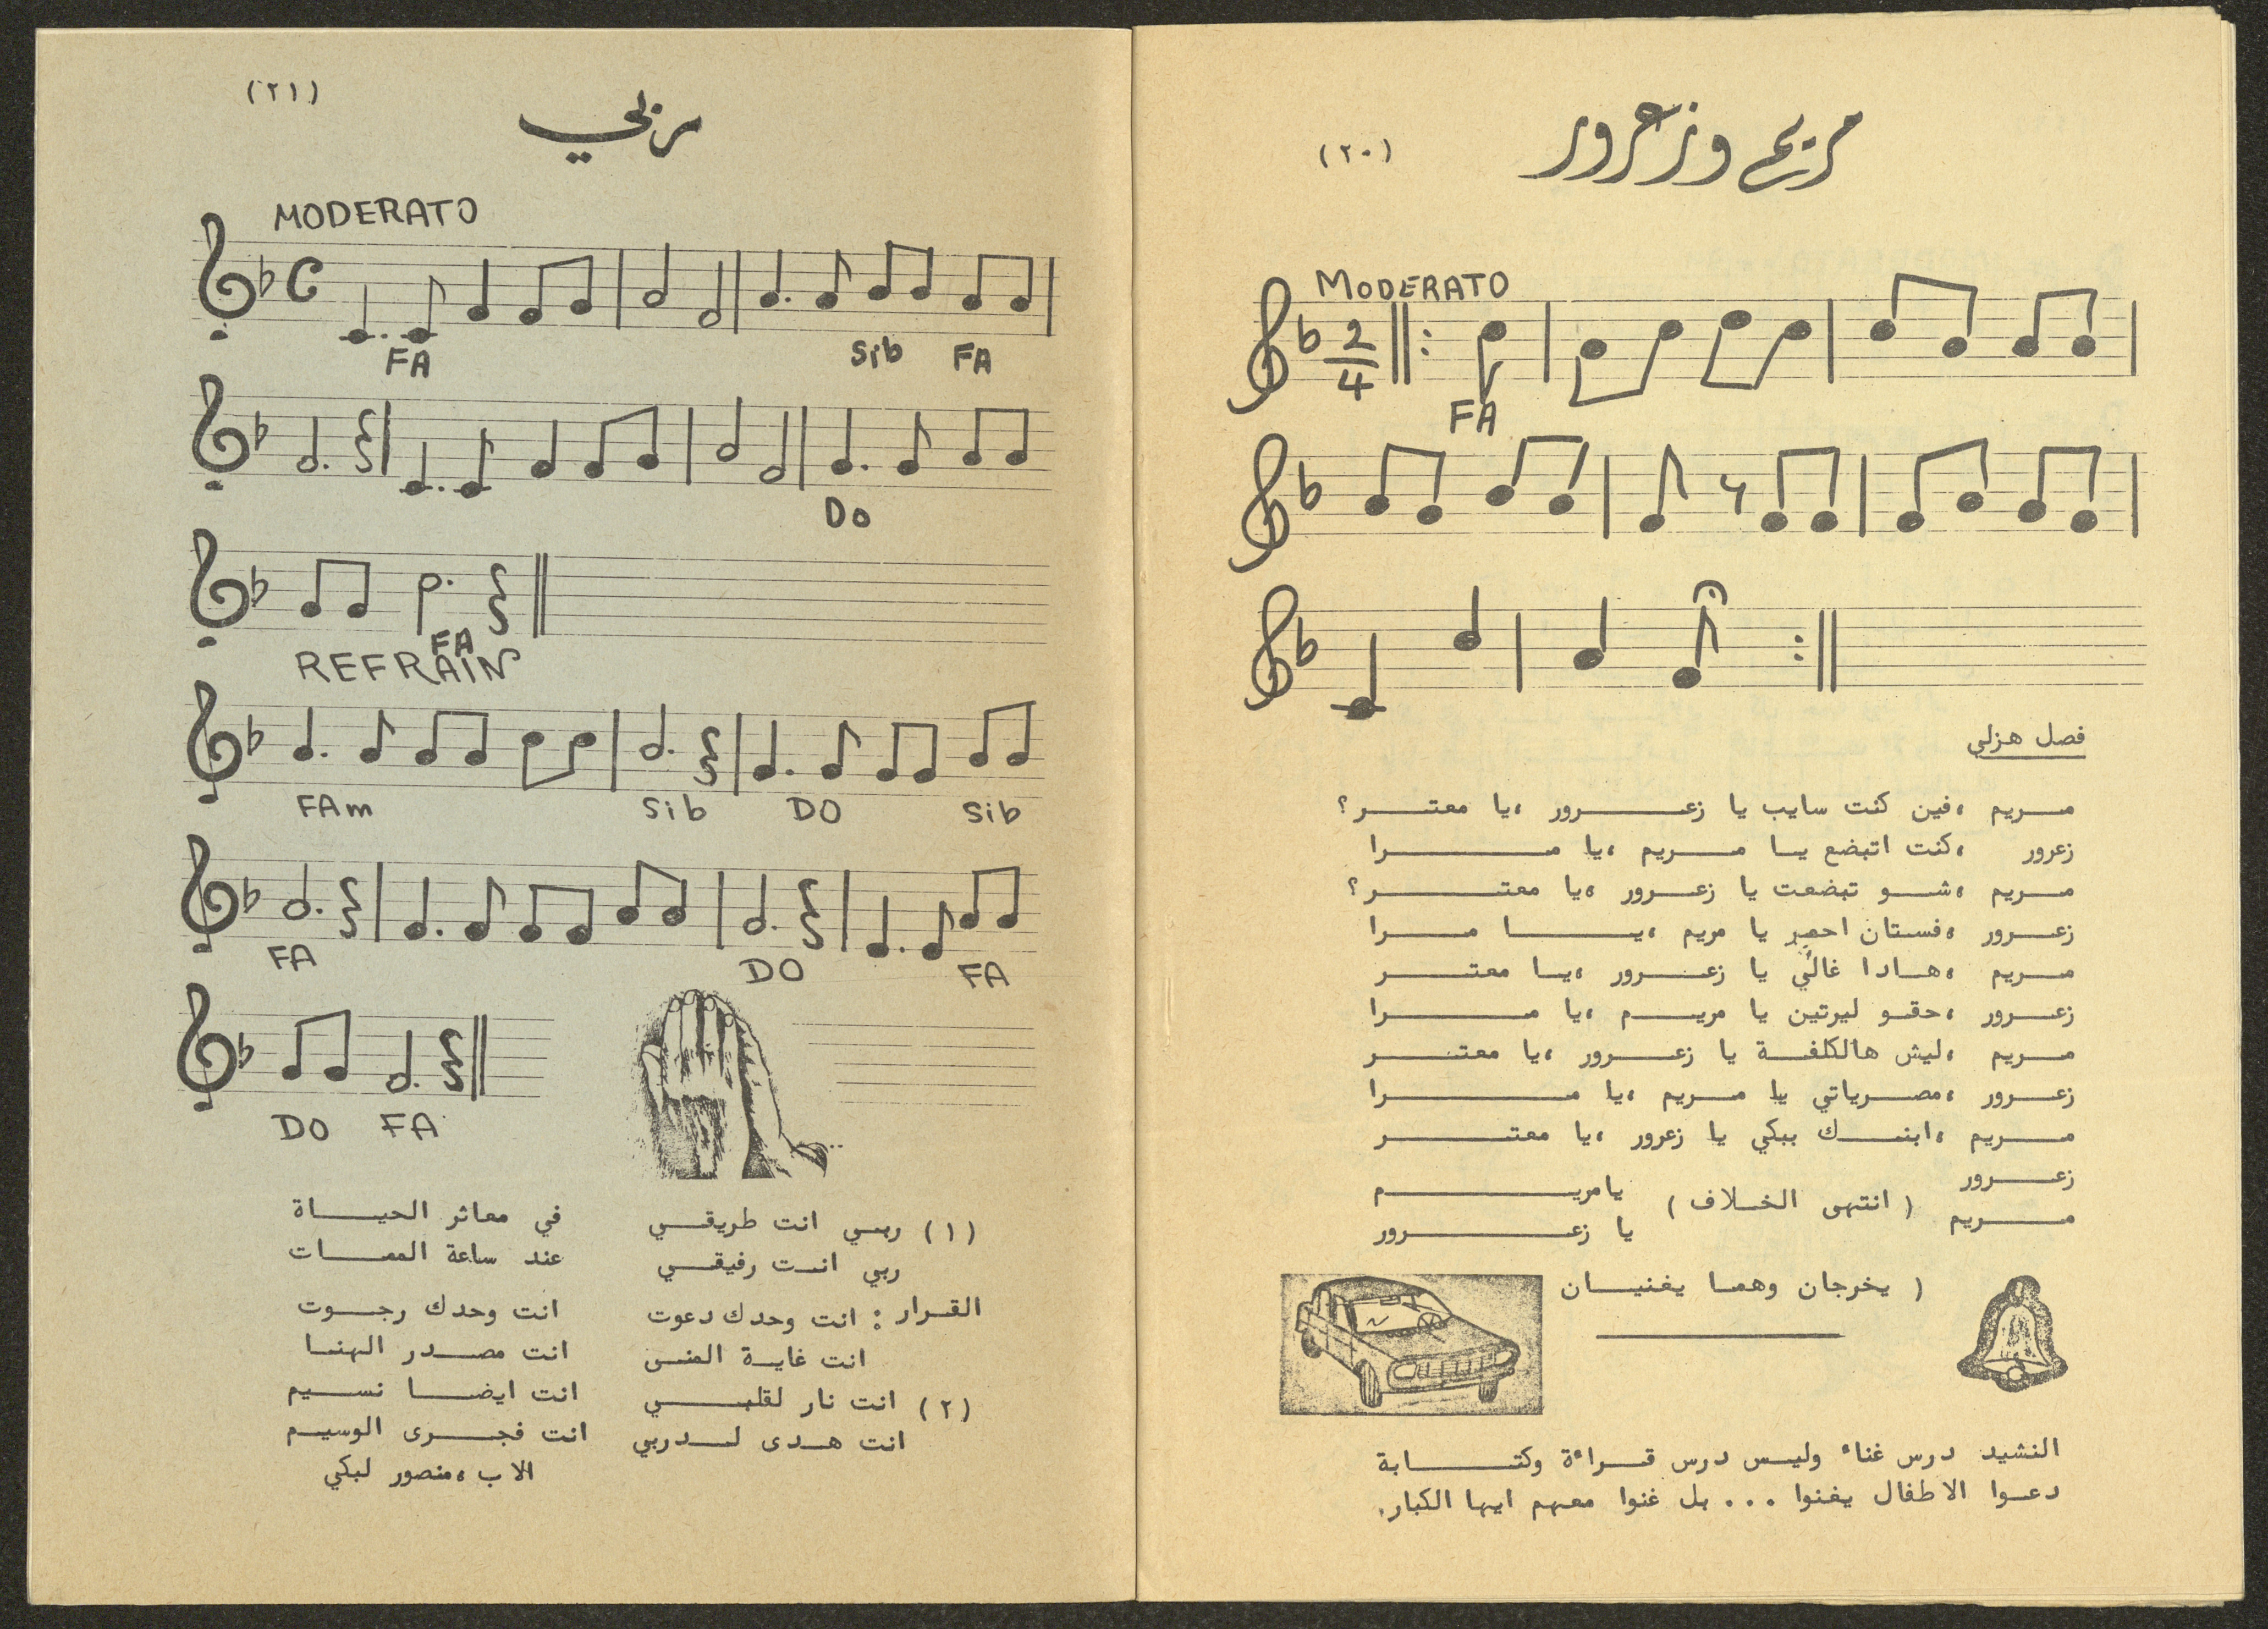 (٢٠)
مريم وزعرور
MODERATO
2
4
FA
فصل هزلي
مريم ،فين كنت سايب يا زعرور ،يا معتر ؟
زعرور ،كنت اتبضع يا مريم ،يا مرا
مريم ،شو تبضعت يا زعرور ،يا معتر ؟
زعرور ،فستان احمر يا مريم ،يا مرا
مريم ،هادا غالي يا زعرور ،يا معتر
زعرور ،حقو ليرتين يا مريم ،يا مرا
مريم ،ليش هالكلفة يا زعرور ،يا معتر
زعرور ،مصرياتي يا مريم ،يا مرا
مريم ،ابنك ببكي يا زعرور ،يا معتر
زعرور يامريم
( انتهى الخلاف )
مريم يا زعرور
( يخرجان وهما يغنيان
النشيد درس غناء وليس درس قراءة وكتابة
دعوا الاطفال يغنوا ... بل غنوا معهم ايها الكبار.
(٢١)
ربي
MODERATO
FA Sib FA
Do
FA
REFRAIN
FAm Sib DO Sib
FA DO FA
DO FA
(١) ربي انت طريقي في معاثر الحياة
ربي انت رفيقي عند ساعة الممات
القرار : انت وحدك دعوت انت وحدك رجوت
انت غاية المنى انت مصدر الهنا
(٢) انت نار لقلبي انت ايضا نسيم
انت هدى لدربي انت فجرى الوسيم
الاب ،منصور لبكي